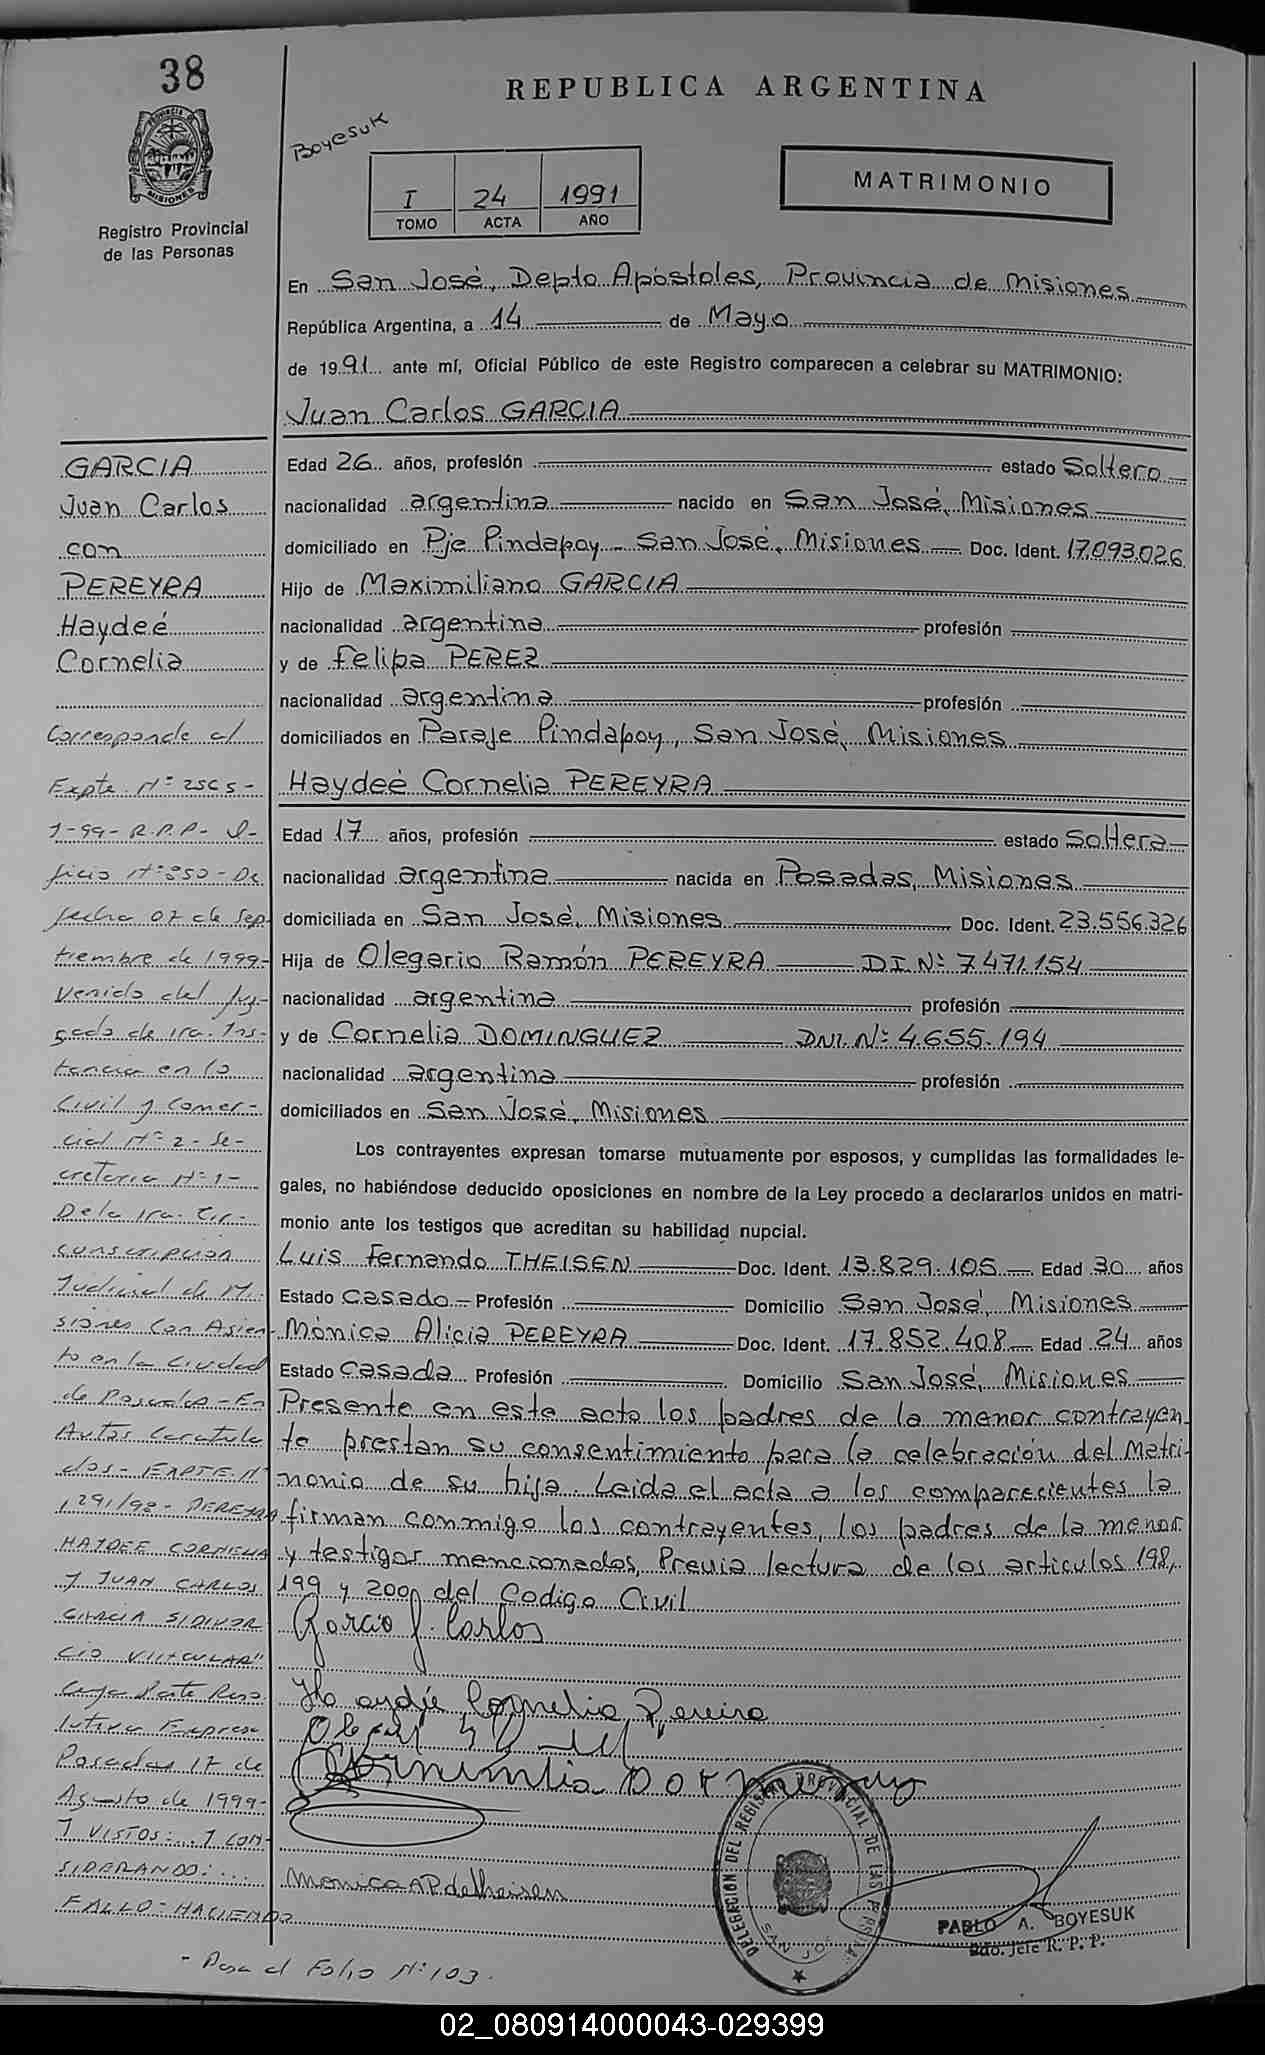 38
PROVINCIA DE
MISIONES
Registro Provincial
de las Personas
REPUBLICA ARGENTINA
Boyesuk
I 24 1991
TOMO ACTA AÑO
MATRIMONIO
En San José, Depto Apóstoles, Provincia de Misiones
República Argentina, a 14 de Mayo
de 1991 ante mí, Oficial Público de este Registro comparecen a celebrar su MATRIMONIO:
Juan Carlos GARCIA
Edad 26 años, profesión estado Soltero
nacionalidad argentina nacido en San José, Misiones
domiciliado en Pje Pindapoy - San José, Misiones Doc. Ident. 17.093.026
Hijo de Maximiliano GARCIA
nacionalidad argentina profesión
y de Felipa PEREZ
nacionalidad argentina profesión
domiciliados en Paraje Pindapoy, San José, Misiones
Haydeé Cornelia PEREYRA
Edad 17 años, profesión estado Soltera
nacionalidad argentina nacida en Posadas, Misiones
domiciliada en San José, Misiones Doc. Ident. 23.556.326
Hija de Olegario Ramón PEREYRA DI.Nº 7.471.154
nacionalidad argentina profesión
y de Cornelia DOMINGUEZ DNI.Nº 4.655.194
nacionalidad argentina profesión
domiciliados en San José, Misiones
Los contrayentes expresan tomarse mutuamente por esposos, y cumplidas las formalidades le-
gales, no habiéndose deducido oposiciones en nombre de la Ley procedo a declararlos unidos en matri-
monio ante los testigos que acreditan su habilidad nupcial.
Luis Fernando THEISEN Doc. Ident. 13.829.105 Edad 30 años
Estado Casado Profesión Domicilio San José, Misiones
Mónica Alicia PEREYRA Doc. Ident. 17.852.408 Edad 24 años
Estado Casada Profesión Domicilio San José, Misiones
Presente en este acto los padres de la menor contrayen
te prestan su consentimiento para la celebración del Matri-
monio de su hija. Leida el acta a los comparecientes la
firman conmigo los contrayentes, los padres de la menor
y testigos mencionados, Previa lectura de los articulos 198,
199 y 200 del Codigo Civil
Garcia J. Carlos
Haydée Cornelia Pereira
Monica AP de theisen
DELEGACIÓN DEL REGISTRO PROVINCIAL DE LAS PERSONAS
SAN JOSE
PABLO A. BOYESUK
Jefe R. P. P.
GARCIA
Juan Carlos
con
PEREYRA
Haydeé
Cornelia
Corresponde al
Expte. Nº 2565-
1-99- R.P.P- O-
ficio Nº 850- De
fecha 07 de Sep
tiembre de 1999-
Venido del Juz-
gado de 1ra. Ins-
tancia en lo
Civil y Comer-
cial Nº 2- Se-
cretaria Nº 1-
De la 1ra. Cir-
cunscripcion
Judicial de Mi
siones Con Asien-
to en la Ciudad
de Posadas- En
Autos Caratula
dos- EXPTE. Nº
1291/98- PEREYRA
HAYDEE CORNELIA
Y JUAN CARLOS
GARCIA S/DIVOR
CIO VINCULAR"
Cuya Parte Reso
lutiva Expresa
Posadas 17 de
Agosto de 1999-
Y VISTOS:... Y CON-
SIDERANDO:...
FALLO: HACIENDO
- Pasa al Folio Nº 103.
02_080914000043-029399